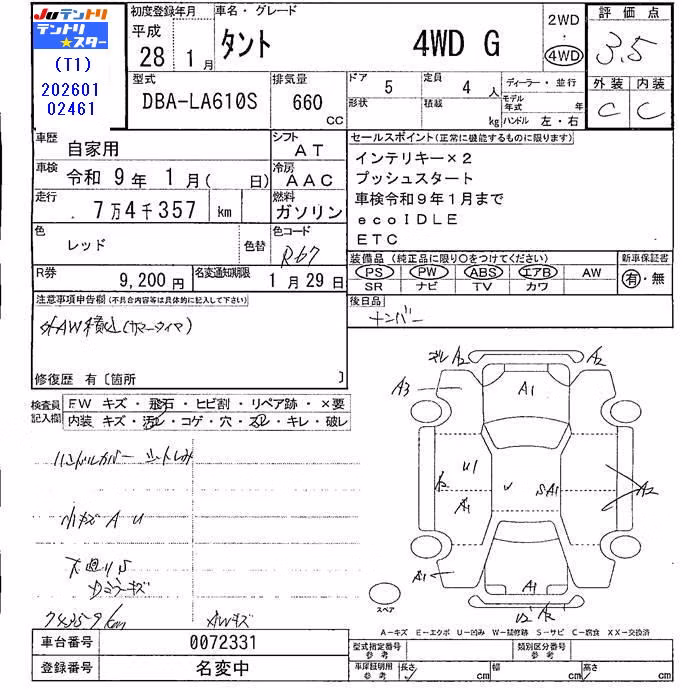 Juテントリ
テントリ
★スター
(T1)
202601
02461
初度登録年月
平成
28 1月
車名・グレード
タント 4WD G
2WD
・
4WD
評価点
3.5
外装 内装
C C
型式
DBA-LA610S
排気量
660 CC
ドア 5
形状
定員 4人
積載 kg
ディーラー・並行
モデル年式 年
ハンドル 左・右
車歴 自家用
シフト AT
車検 令和 9年 1月( 日)
冷房 AAC
走行 7万4千357 km
燃料 ガソリン
色 レッド 色替
色コード R67
R券 9,200 円
名変通知期限 1月29日
セールスポイント(正常に機能するものに限ります)
インテリキー×2
プッシュスタート
車検令和9年1月まで
ecoIDLE
ETC
装備品 (純正品に限り○をつけてください)
PS PW ABS エアB AW
SR ナビ TV カワ
新車保証書
有・無
注意事項申告欄(不具合内容等は具体的に記入して下さい)
外AW積込(サマータイヤ)
修復歴 有〔箇所 〕
後日品
ナンバー
検査員記入欄
FW キズ・飛石・ヒビ割・リペア跡・×要
内装 キズ・汚レ・コゲ・穴・スレ・キレ・破レ
ハンドルカバー シートしみ
小キズ A U
下廻りS
Dミラーキズ
74359km AWキズ
A2 A2
A3 A1
U1
A2 A1 SA1 A2
A1 A1
スペア
A-キズ E-エクボ U-凹み W-補修跡 S-サビ C-腐食 XX-交換済
車台番号 0072331
登録番号 名変中
型式指定番号 参考
類別区分番号 参考
車庫証明用 参考
長さ cm 幅 cm 高さ cm